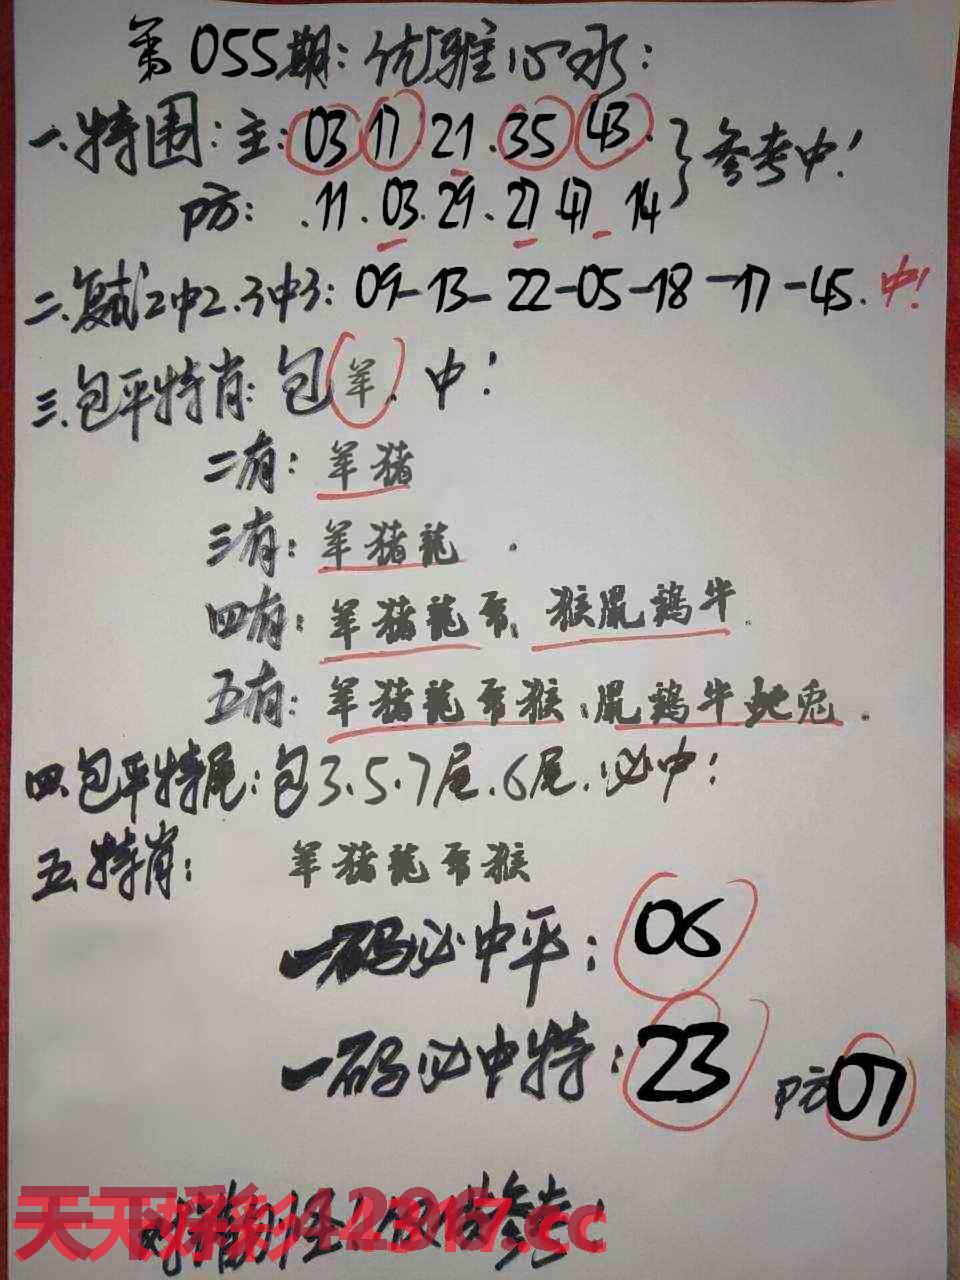 第055期：优雅心水：
一.特围：主：03 17 21.35 43.
防：.11.03.29.27.47 14 } 参考中！
二.复试2中2.3中3：09-13-22-05-18-17-45.中！
三.包平特肖：包羊.中！
二有：羊猪
三有：羊猪龍.
四有：羊猪龍馬、猴鼠鷄牛.
五有：羊猪龍馬猴、鼠鷄牛蛇兔.
四.包平特尾：包3.5.7尾.6尾.必中！
五.特肖：羊猪龍馬猴
一码必中平：06
一码必中特：23 防07
天下彩1 2317.cc